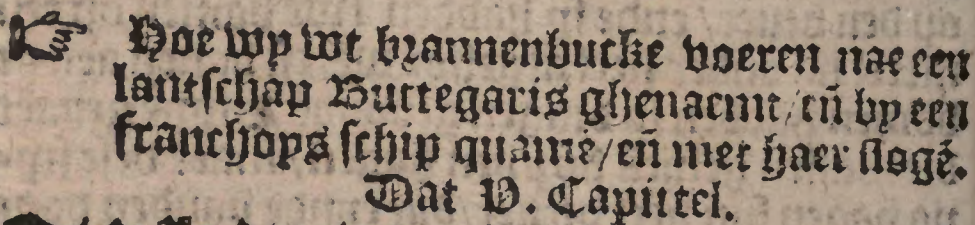 ☞ Hoe wy wt brannenbucke voeren nae een
lantschap Buttegaris ghenaemt/ en̄ by een
franchoys schip quamē/ en̄ met haer slogē.
Dat V. Capittel.